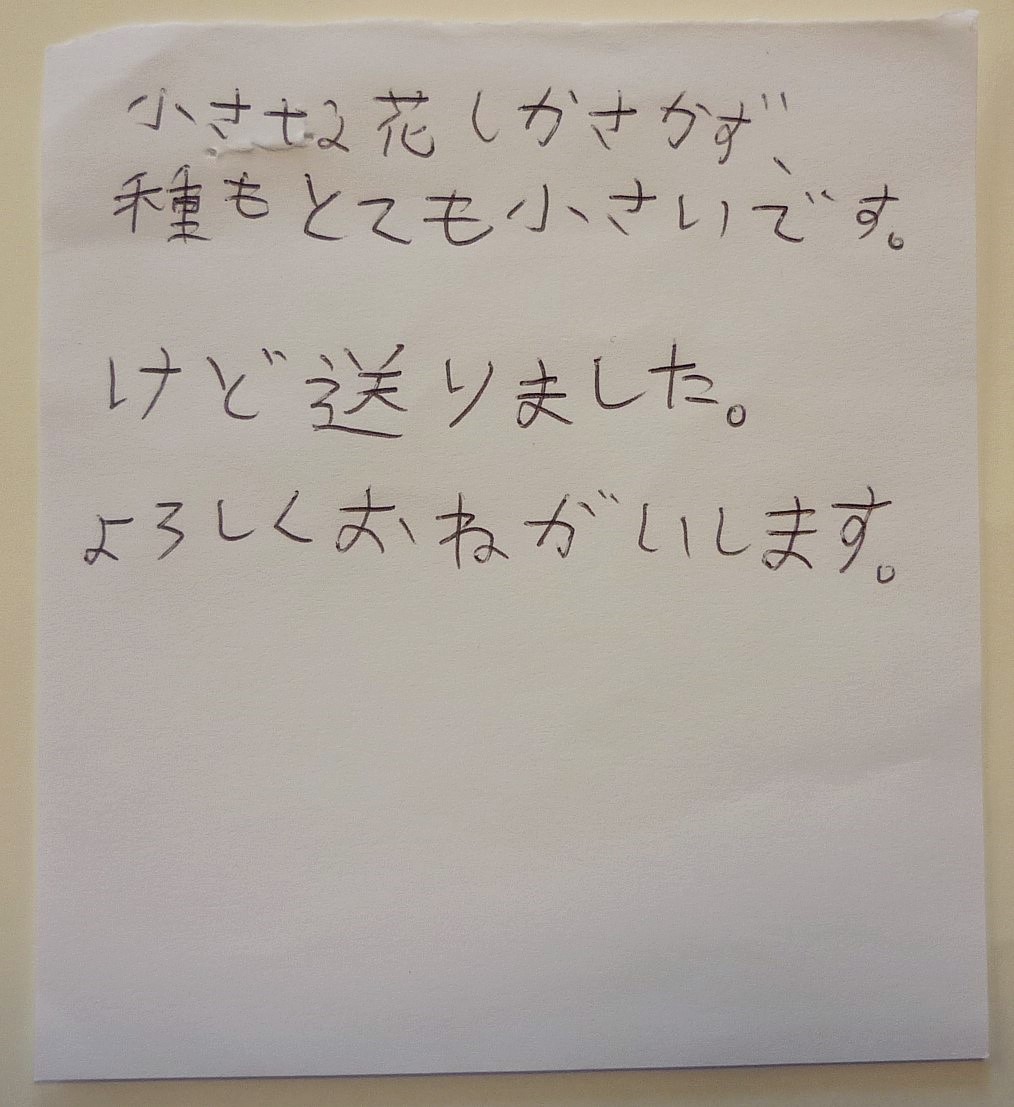 小さな花しかさかず、
種もとても小さいです。
けど送りました。
よろしくおねがいします。